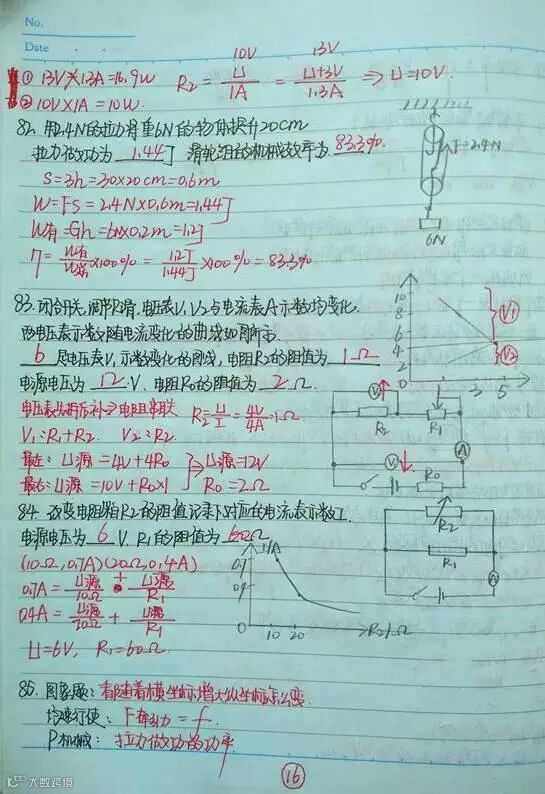 No.
Date
10V 13V
① 13V×1.3A=16.9W R2=U/1A=U+3V/1.3A⇒U=10V.
② 10V×1A=10W.
82. 用2.4N的拉力将重6N的物体提升20cm
拉力做功为 1.44J 滑轮组的机械效率为 83.3%.
F=2.4N
6N
S=3h=3×20cm=0.6m
W=FS=2.4N×0.6m=1.44J
W有=Gh=6N×0.2m=1.2J
η=W有/W总×100%=1.2J/1.44J×100%=83.3%
83. 闭合开关,调节R滑,电压表V1、V2与电流表A示数均变化.
两电压表示数随电流变化的曲线如图所示.
是电压表V1示数变化的曲线,电阻R2的阻值为 1Ω
电源电压为 12 V. 电阻R0的阻值为 2 Ω.
10
8
6
4
2
0
1 5
V1
V2
电阻串联 R2=U/I=4V/4A=1Ω
V1:R1+R2. V2:R2.
最左:U源=4V+4R0
最右:U源=10V+R0×1
⇒U源=12V
R0=2Ω
V
R2
R1
A
V
R0
84. 改变电阻箱R2的阻值记录下对应的电流表示数I.
电源电压为 6 V. R1的阻值为 60Ω
(10Ω,0.7A)(20Ω,0.4A)
0.7A=U源/10Ω+U源/R1
0.4A=U源/20Ω+U源/R1
U=6V, R1=60Ω
I/A
0.7
0.4
0 10 20 R2/Ω
R2
R1
A
85. 图象题:看随着横坐标增大纵坐标怎么变
匀速行使:F牵引力=f.
P机械:拉力做功的功率
16
大数跨境